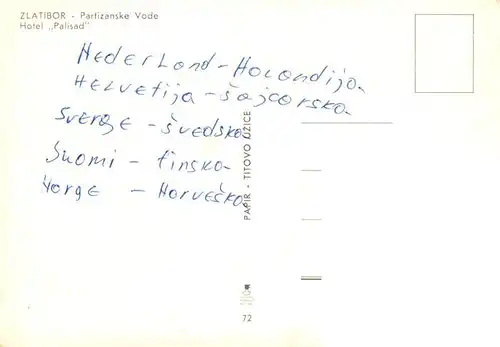 ZLATIBOR - Partizanske Vode
Hotel „Palisad"
Nederland - Holandija
Helvetija - Šajcarska
Sverge - Švedska
Suomi - Finska
Norge - Norveška
PAPIR - TITOVO UŽICE
72